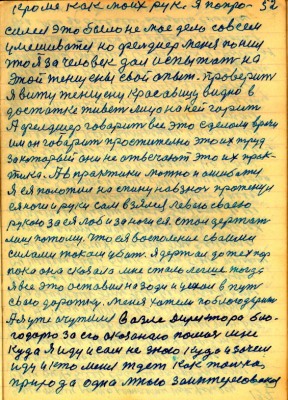 кроме как моих рук Я попро- 52
сился это было не мое дело совсем
умешиватся но фельдшер меня понял
что Я за человек дал испытать на
этой женщины свой опыт. Проверить
Я вижу женщину красавицу видно в
достатке живет лицо на ней горит
А фельдшер говорит все это сделали врачи
им он говорит простительно это их труд
за который они не отвечают это их прак-
тика. А в практики можно и ошибатся
Я ея положил на спину навзнач протянул
ея ноги и руки сам взялся левою своею
рукою за ея лоб и за ноги ея стою держат
мыслю потому. Что ея воспаление своими
силами током убют. Я держал до тех пор
пока она сказала мне стало легше тогда
Я все это оставил назади и ушел в путь
свою дорожку. Меня хотели поблогодарить
А Я уже очутился возле директора бло-
годарю за его оказаную помощ мне
куда Я иду и сам не знаю куда и зачем
иду и кто меня ждет как только
природа одна мною заинтересовалась